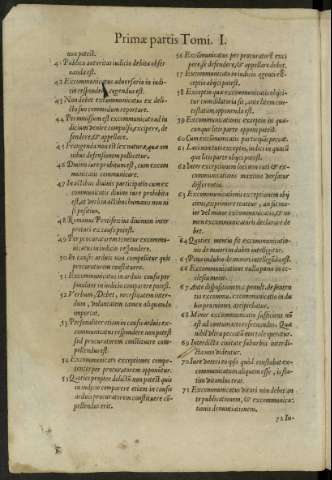 Primæ partis Tomi. I.
non potest.
41 Publica autoritas iudicio debita obser
uanda est.
42 Excommunicatus aduersario in iudi-
cio respondere cogendus est.
43 Non debet excommunicatus ex deli-
cto suo commodum reportare.
44 Permissum est excommunicato ad iu
dicium venire compulso, excipere, de
fendere, & appellare.
45 Frangenda non est lex naturæ, quæ om
nibus defensionem pollicetur.
46 Diuini iuris prohibitum est, cum excom
municatis, communicare.
47 In actibus diuinis participatio cum ex
communicatis diuino iure prohibita
est, at verò in actibus humanis non ni
si positiuo.
48 Romanus Pontifex ius diuinum inter
pretari ex causa potest.
49 Per procuratorem tenetur excommu-
nicatus in iudicio respondere.
50 In causis arduis non compellitur quis
procuratorem constituere.
51 Excommunicatus in arduis causis per
sonaliter in iudicio comparere potest.
52 Verbum, Debet, necessitatem inter-
dum, voluntatem tamen aliquando
importat.
53 Personaliter etiam in causis arduis ex-
communicatus respondere non potest
sed procuratorem constituere com-
pellendus est.
54 Excommunicati exceptiones compe-
tentes per procuratorem opponitur.
55 Quoties propter delictum non potest quis
in iudicio comparere etiam in causis
arduis procuratorem constituere com
pellendus erit.
56 Excommunicatus per procuratorem exci
pere, se defendere, & appellare debet.
57 Excommunicatio in iudicio agenti ex
ceptio obijci potest.
58 Exceptio quæ excommunicato obijci-
tur cum dilatoria sit, ante litem con-
testatam, opponi debet.
59 Exceptio excommunicationis in quacun
que litis parte opponi potest.
60 Per quos actus à procuratorio recedatur.
61 Læsi mentis exceptio, iudicij in quacun
que litis parte obijci potest.
62 Inter exceptionem læsi mentis & excom
municationis maxima versatur
differentia.
63 Excommunicationis exceptionem obij
ciens, exprimere tenetur, an sit ma-
ior vel minor excommunicatio, & no
men excommunicatoris declarare de-
bet.
64 Quoties mentio sit excommunicatio-
nis de maiori in dubio intelligetur.
65 Pœna in dubio de minori intelligenda est.
66 Excommunicatione nulla pœna in ec-
clesia maior.
67 Ante disputationem potenti. de senten-
tia excommu. excommunicatio in du
bio pro minori accipi debetur.
68 Minor excommunicatio sufficiens non
est ad contumaces refrenandos. Qua
nihil de hoc peccati mortalis operatur.
69 Interdicta ciuitate suburbia interdi-
cta non videntur.
70 Iure veteri eo ipso quòd constabat ex-
communicatum aliquem esse, is sta-
tim vitandus erat.
71 Excommunicatus vitari non debet, an
te publicationem, & excommunica-
tionis denuntiationem.
72 In-